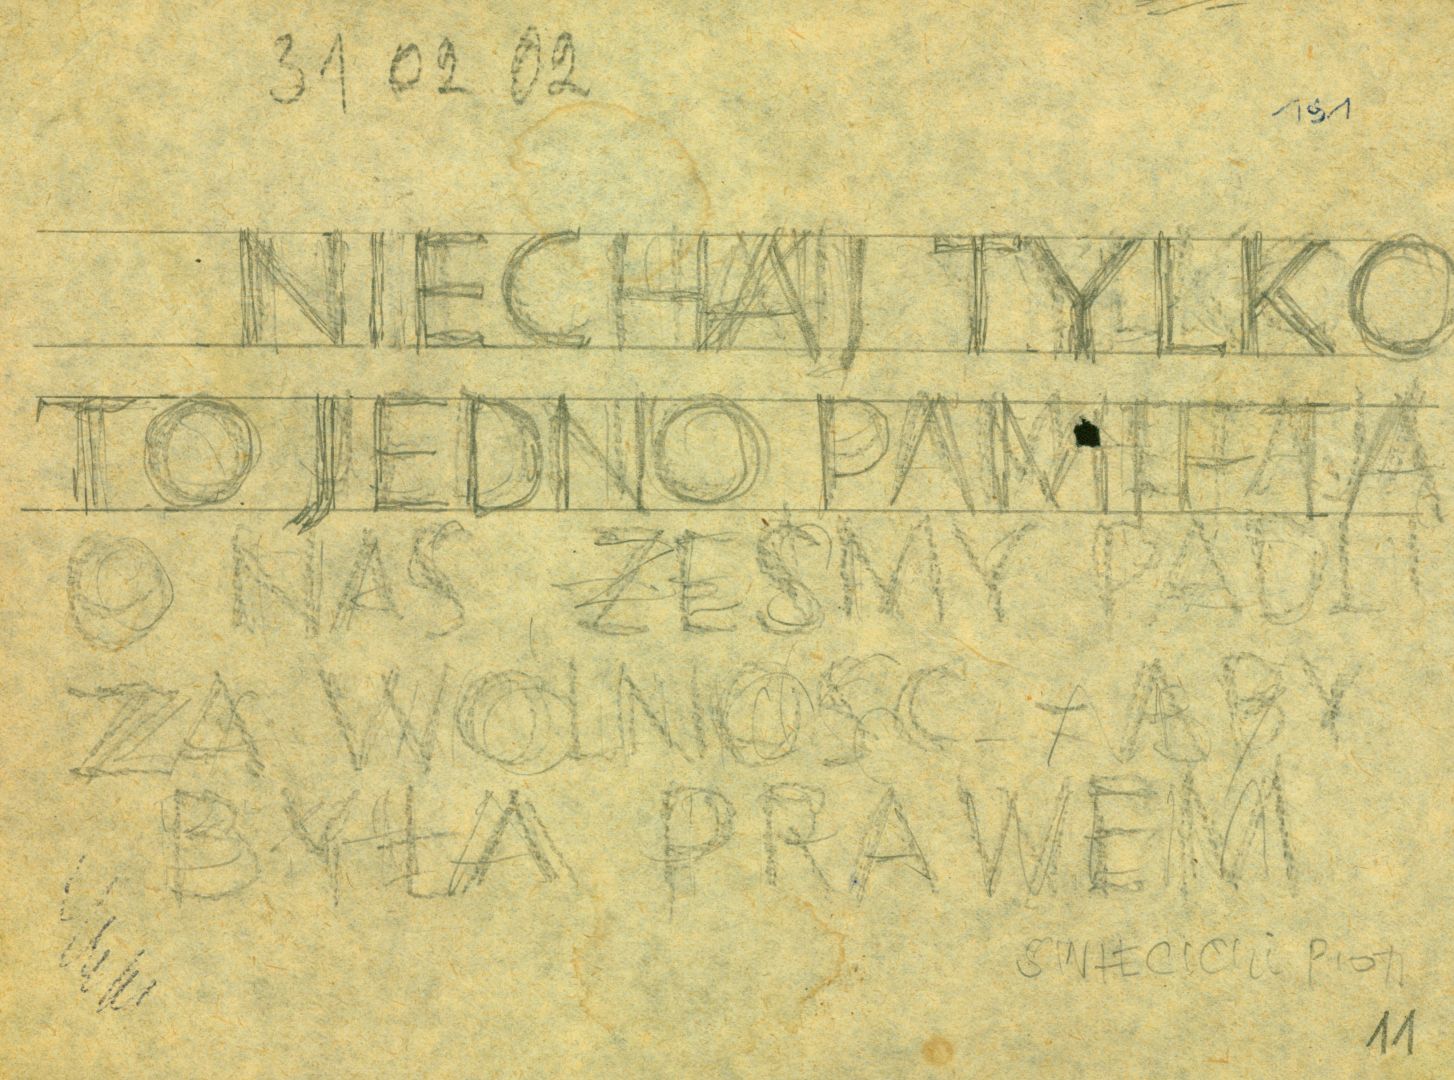 31 02 02
191
NIECHAJ TYLKO
TO JEDNO PAMIĘTA
O NAS ŻEŚMY PADLI
ZA WOLNOŚĆ - ABY
BYŁA PRAWEM
ŚWIĘCICKI Piotr
11